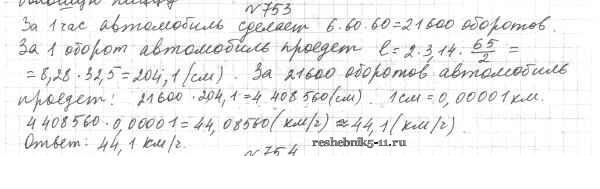 N753
За 1 час автомобиль сделает 6·60·60=21600 оборотов.
За 1 оборот автомобиль проедет l = 2·3,14·65/2 =
= 8,28·32,5=204,1 (см). За 21600 оборотов автомобиль
проедет: 21600·204,1=4 408 560 (см). 1см=0,00001 км.
4 408560·0,00001=44,08560 (км/г) ≈ 44,1 (км/г).
Ответ: 44,1 км/г.
N754
reshebnik5-11.ru